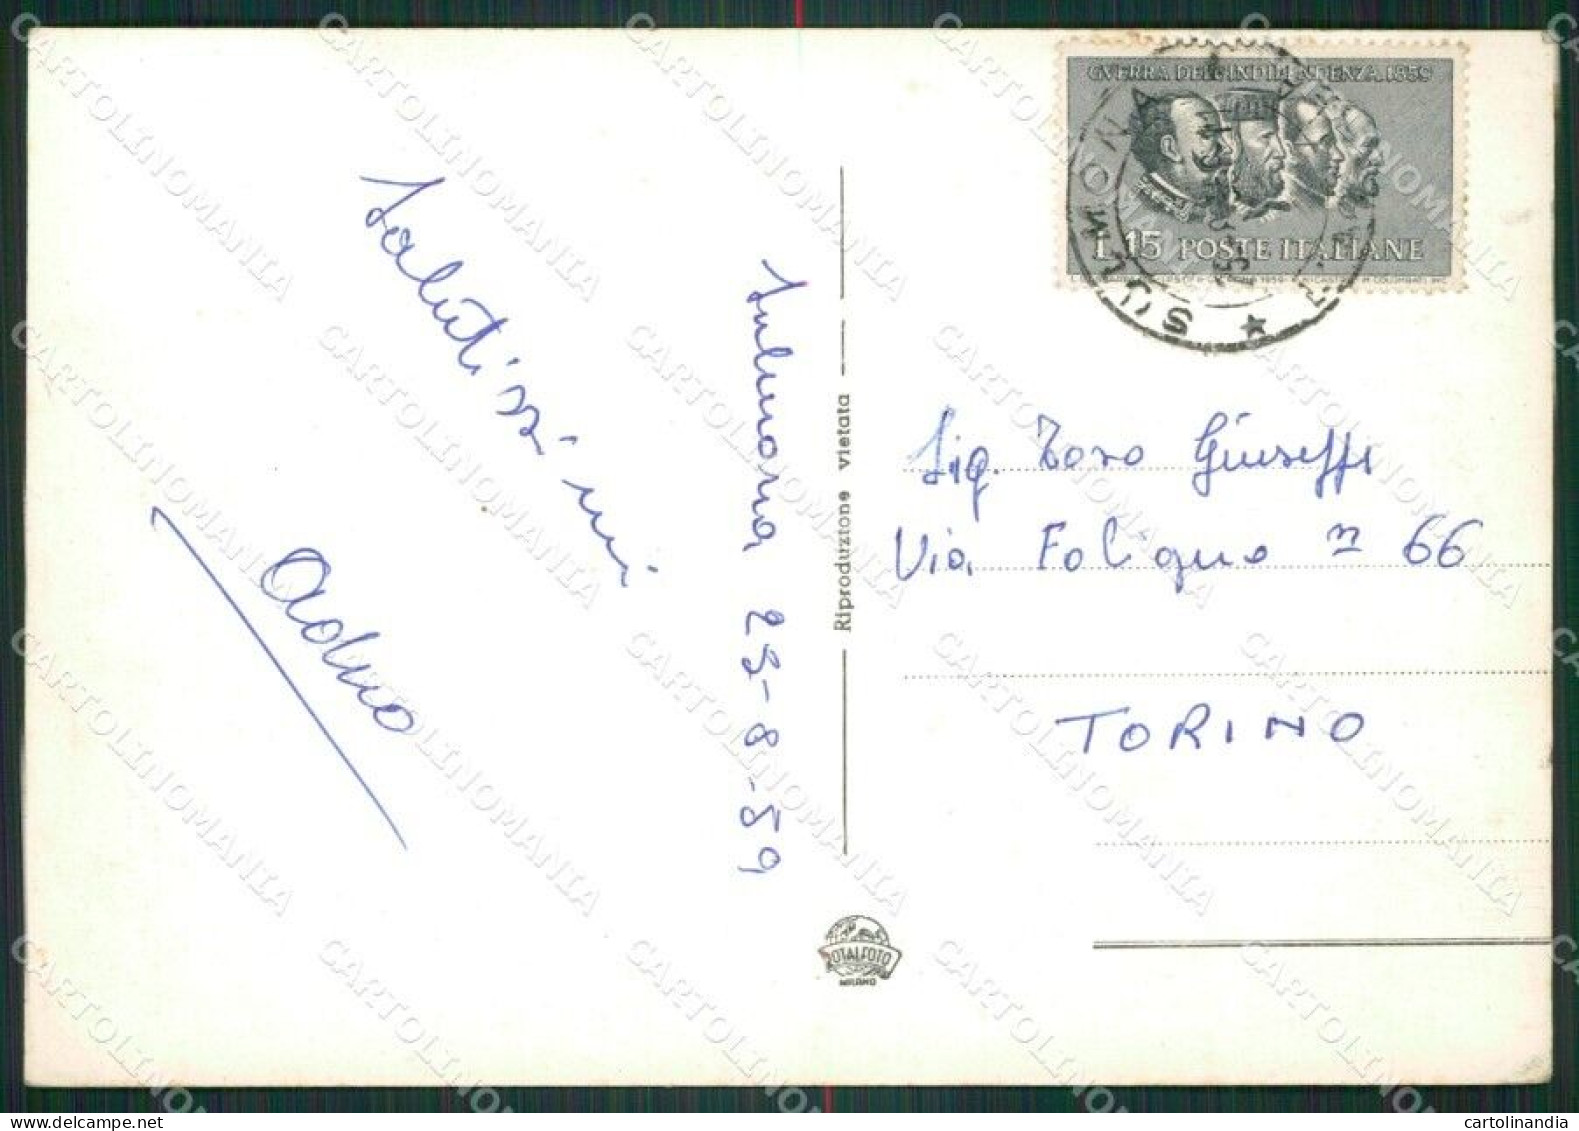 GVERRA DELL'INDIPENDENZA 1859
L.15 POSTE ITALIANE
SULMONA
Salutissimi
Sulmona 29-8-59
Riproduzione vietata
Sig. Toso Giuseppe
Via Foligno n 66
TORINO
ROTALFOTO
MILANO
CARTOLINOMANIA